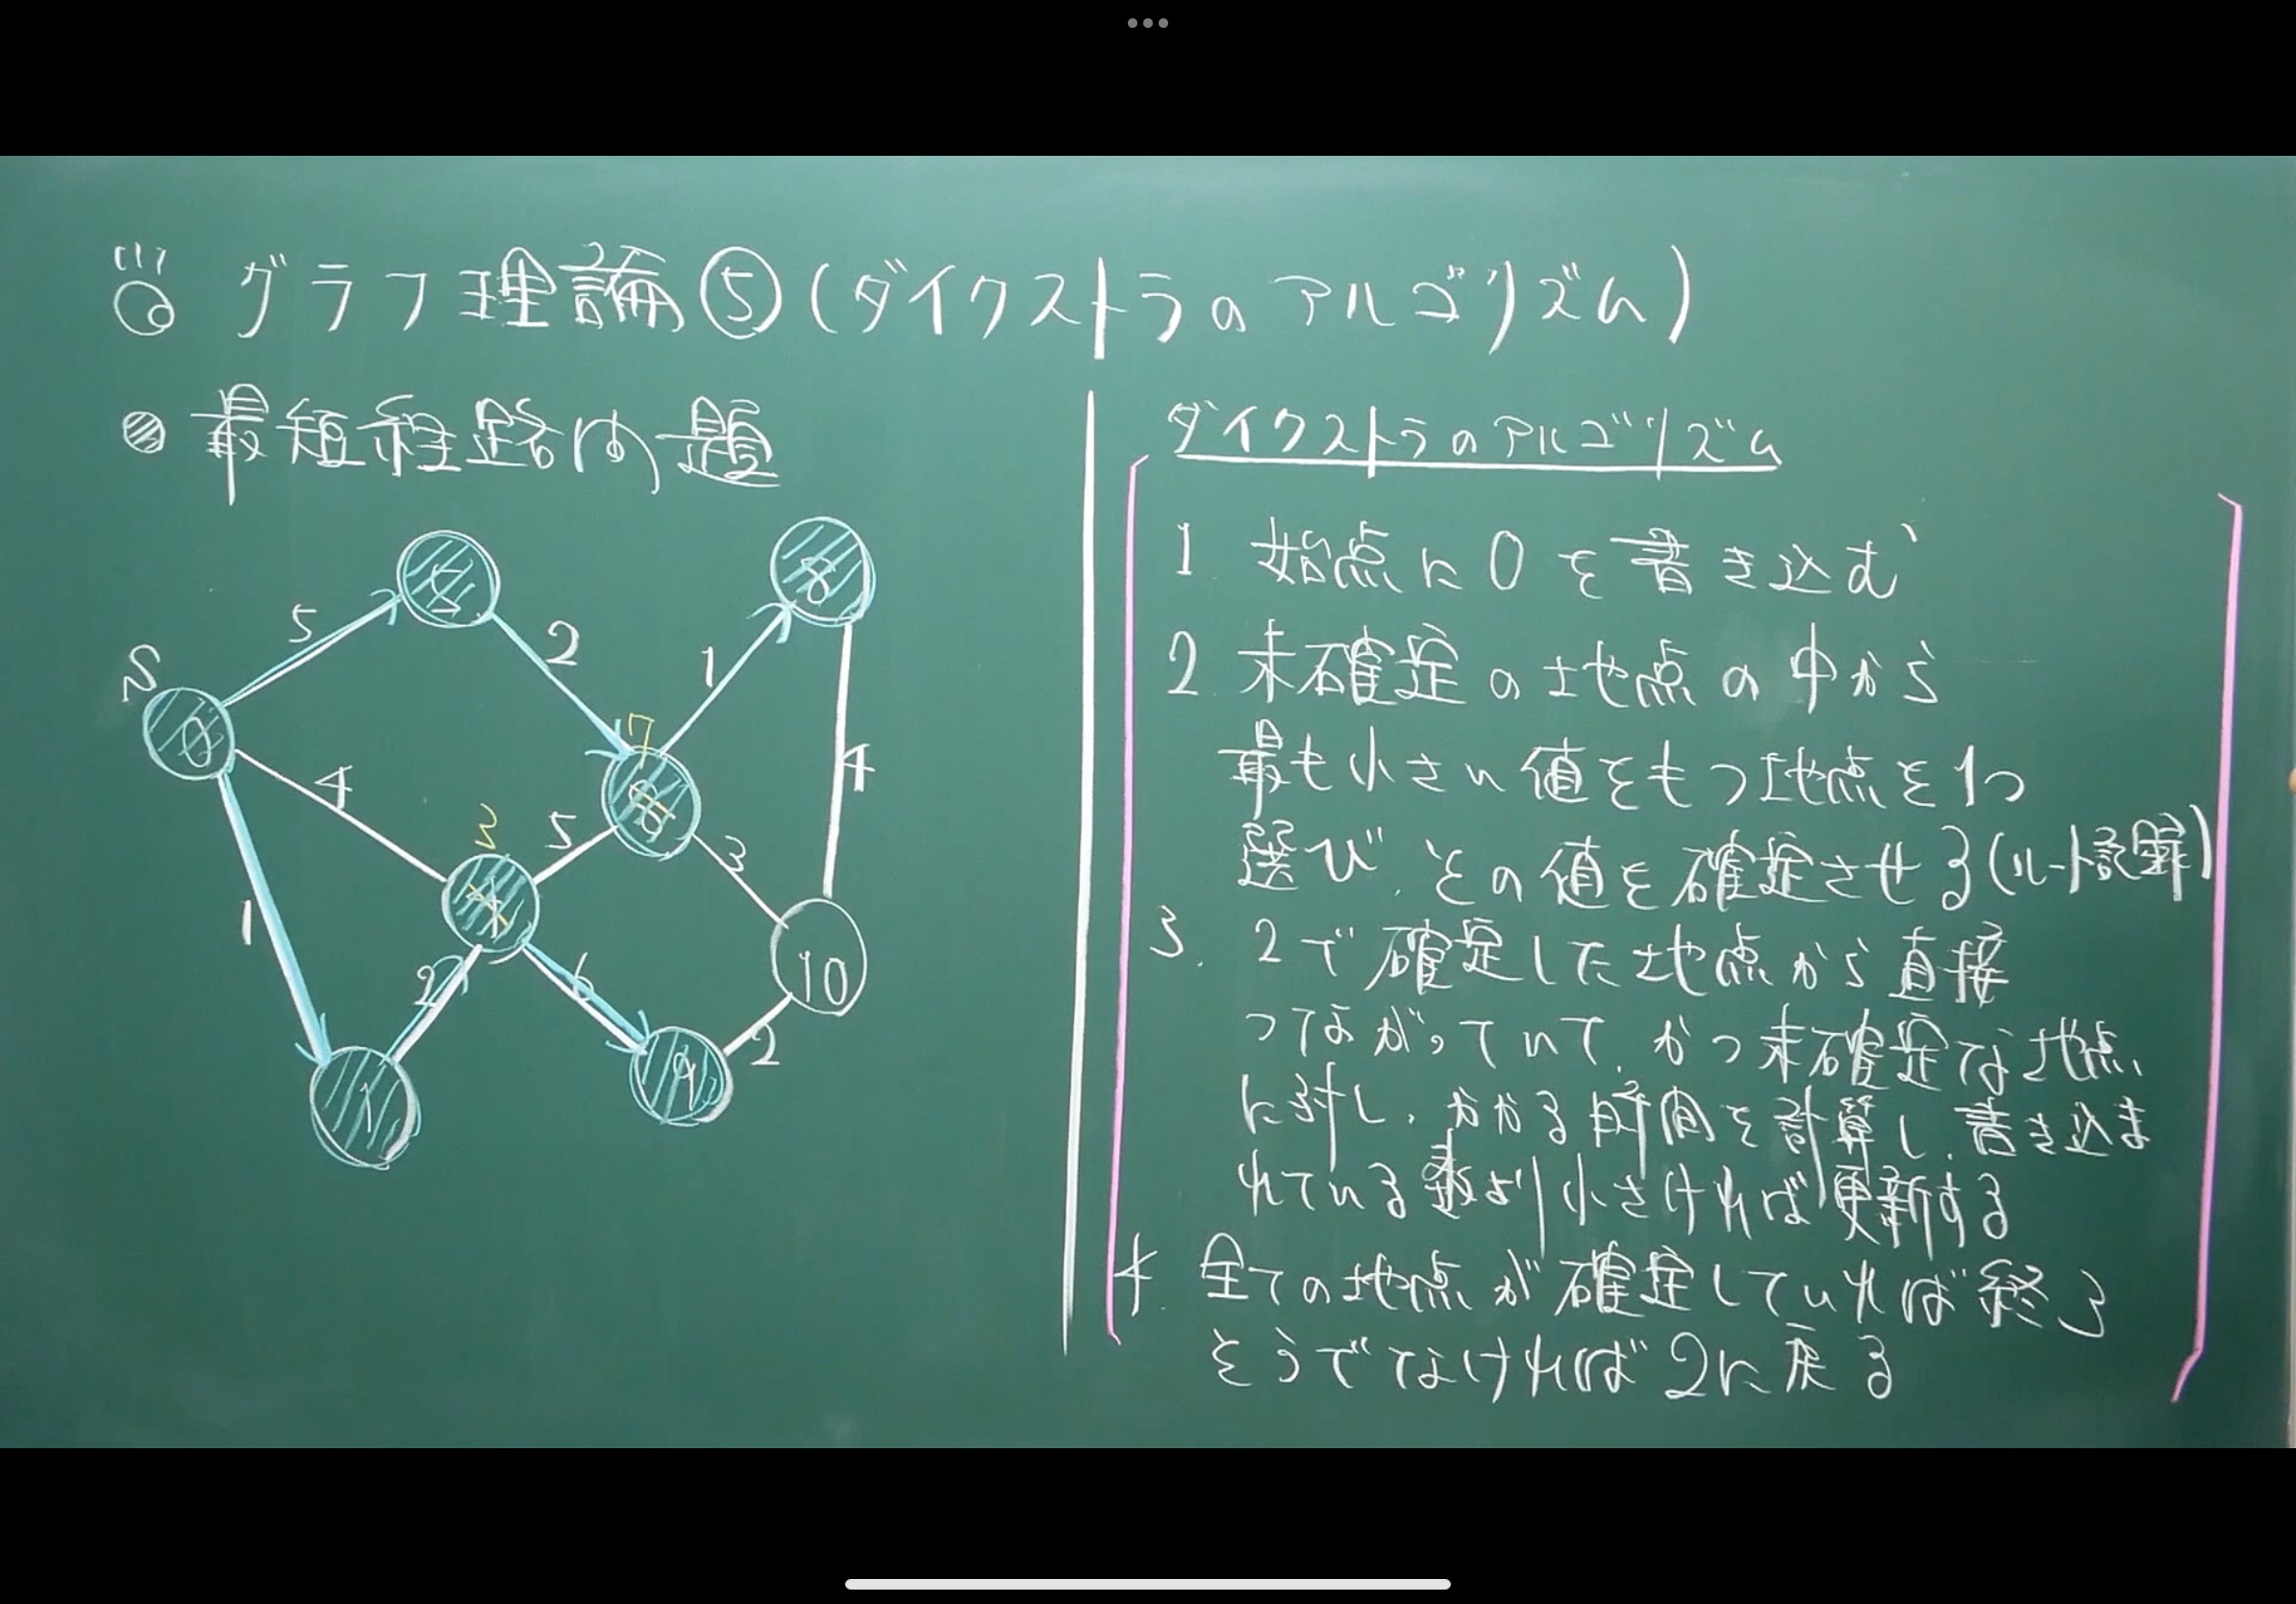 グラフ理論⑤(ダイクストラのアルゴリズム)
最短経路問題
S
0
5
5
2
7
8
1
8
4
4
3
4
5
3
10
1
2
6
1
9
2
ダイクストラのアルゴリズム
1. 始点に0を書き込む
2. 未確定の地点の中から
最も小さい値をもつ地点を1つ
選び、その値を確定させる(ルート記録)
3. 2で確定した地点から直接
つながっていて、かつ未確定な地点
に対し、かかる時間を計算し、書き込ま
れている数より小さければ更新する
4. 全ての地点が確定していれば終了
そうでなければ2に戻る